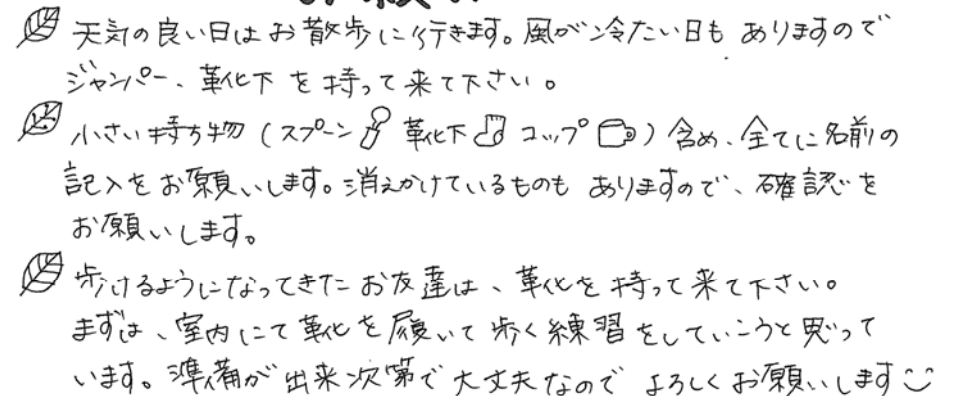 天気の良い日はお散歩に行きます。風が冷たい日もありますので
ジャンパー、靴下を持って来て下さい。
小さい持ち物（スプーン 靴下 コップ）含め、全てに名前の
記入をお願いします。消えかけているものもありますので、確認を
お願いします。
歩けるようになってきたお友達は、靴を持って来て下さい。
まずは、室内にて靴を履いて歩く練習をしていこうと思って
います。準備が出来次第で大丈夫なのでよろしくお願いします